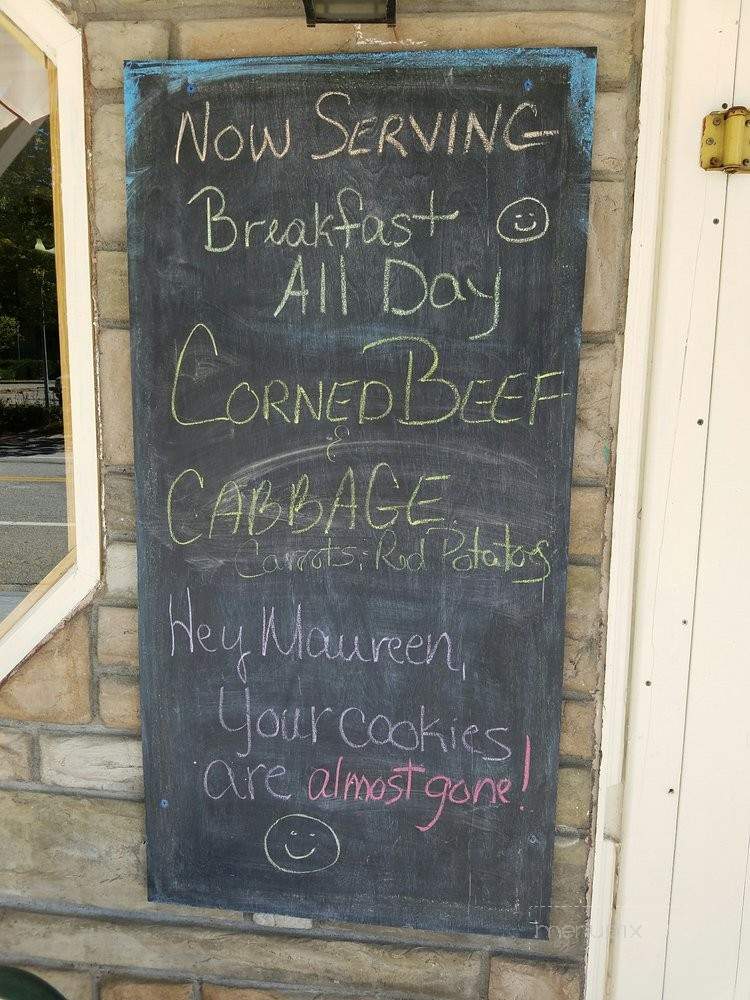 NOW SERVING
Breakfast
All Day
CORNED BEEF
&
CABBAGE
Carrots, Red Potatoes
Hey Maureen,
your cookies
are almost gone!
menupix